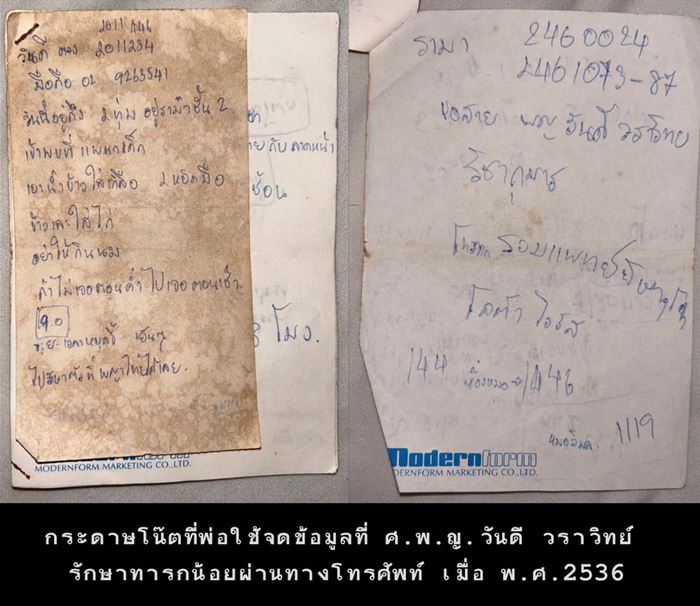 2011 446
วันดี ตรง 2011234
มือถือ 02 9263541
วันนี้อยู่ถึง 2 ทุ่ม อยู่รามาชั้น 2
เข้าพบที่ แผนกเด็ก
เอาน้ำข้าวใส่เกลือ 2 หยิบมือ
ข้าวเละใส่ไก่
อย่าให้กินนม
ถ้าไม่เจอตอนค่ำไปเจอตอนเช้า
9.0
ไปรักษาตัวที่พญาไทยได้เลย.
กับ ลาดหน้า
ช้อน
โมง.
Modernform
MODERNFORM MARKETING CO.,LTD.
รามา 2460024
2461073-87
ขอสาย พญ วันดี วราวิทย์
วิชากุมาร
โรต้า ไวรัส
144 ห้องหมอ → 1446
1119
Modernform
MODERNFORM MARKETING CO.,LTD.
กระดาษโน๊ตที่พ่อใช้จดข้อมูลที่ ศ.พ.ญ.วันดี วราวิทย์
รักษาทารกน้อยผ่านทางโทรศัพท์ เมื่อ พ.ศ.2536